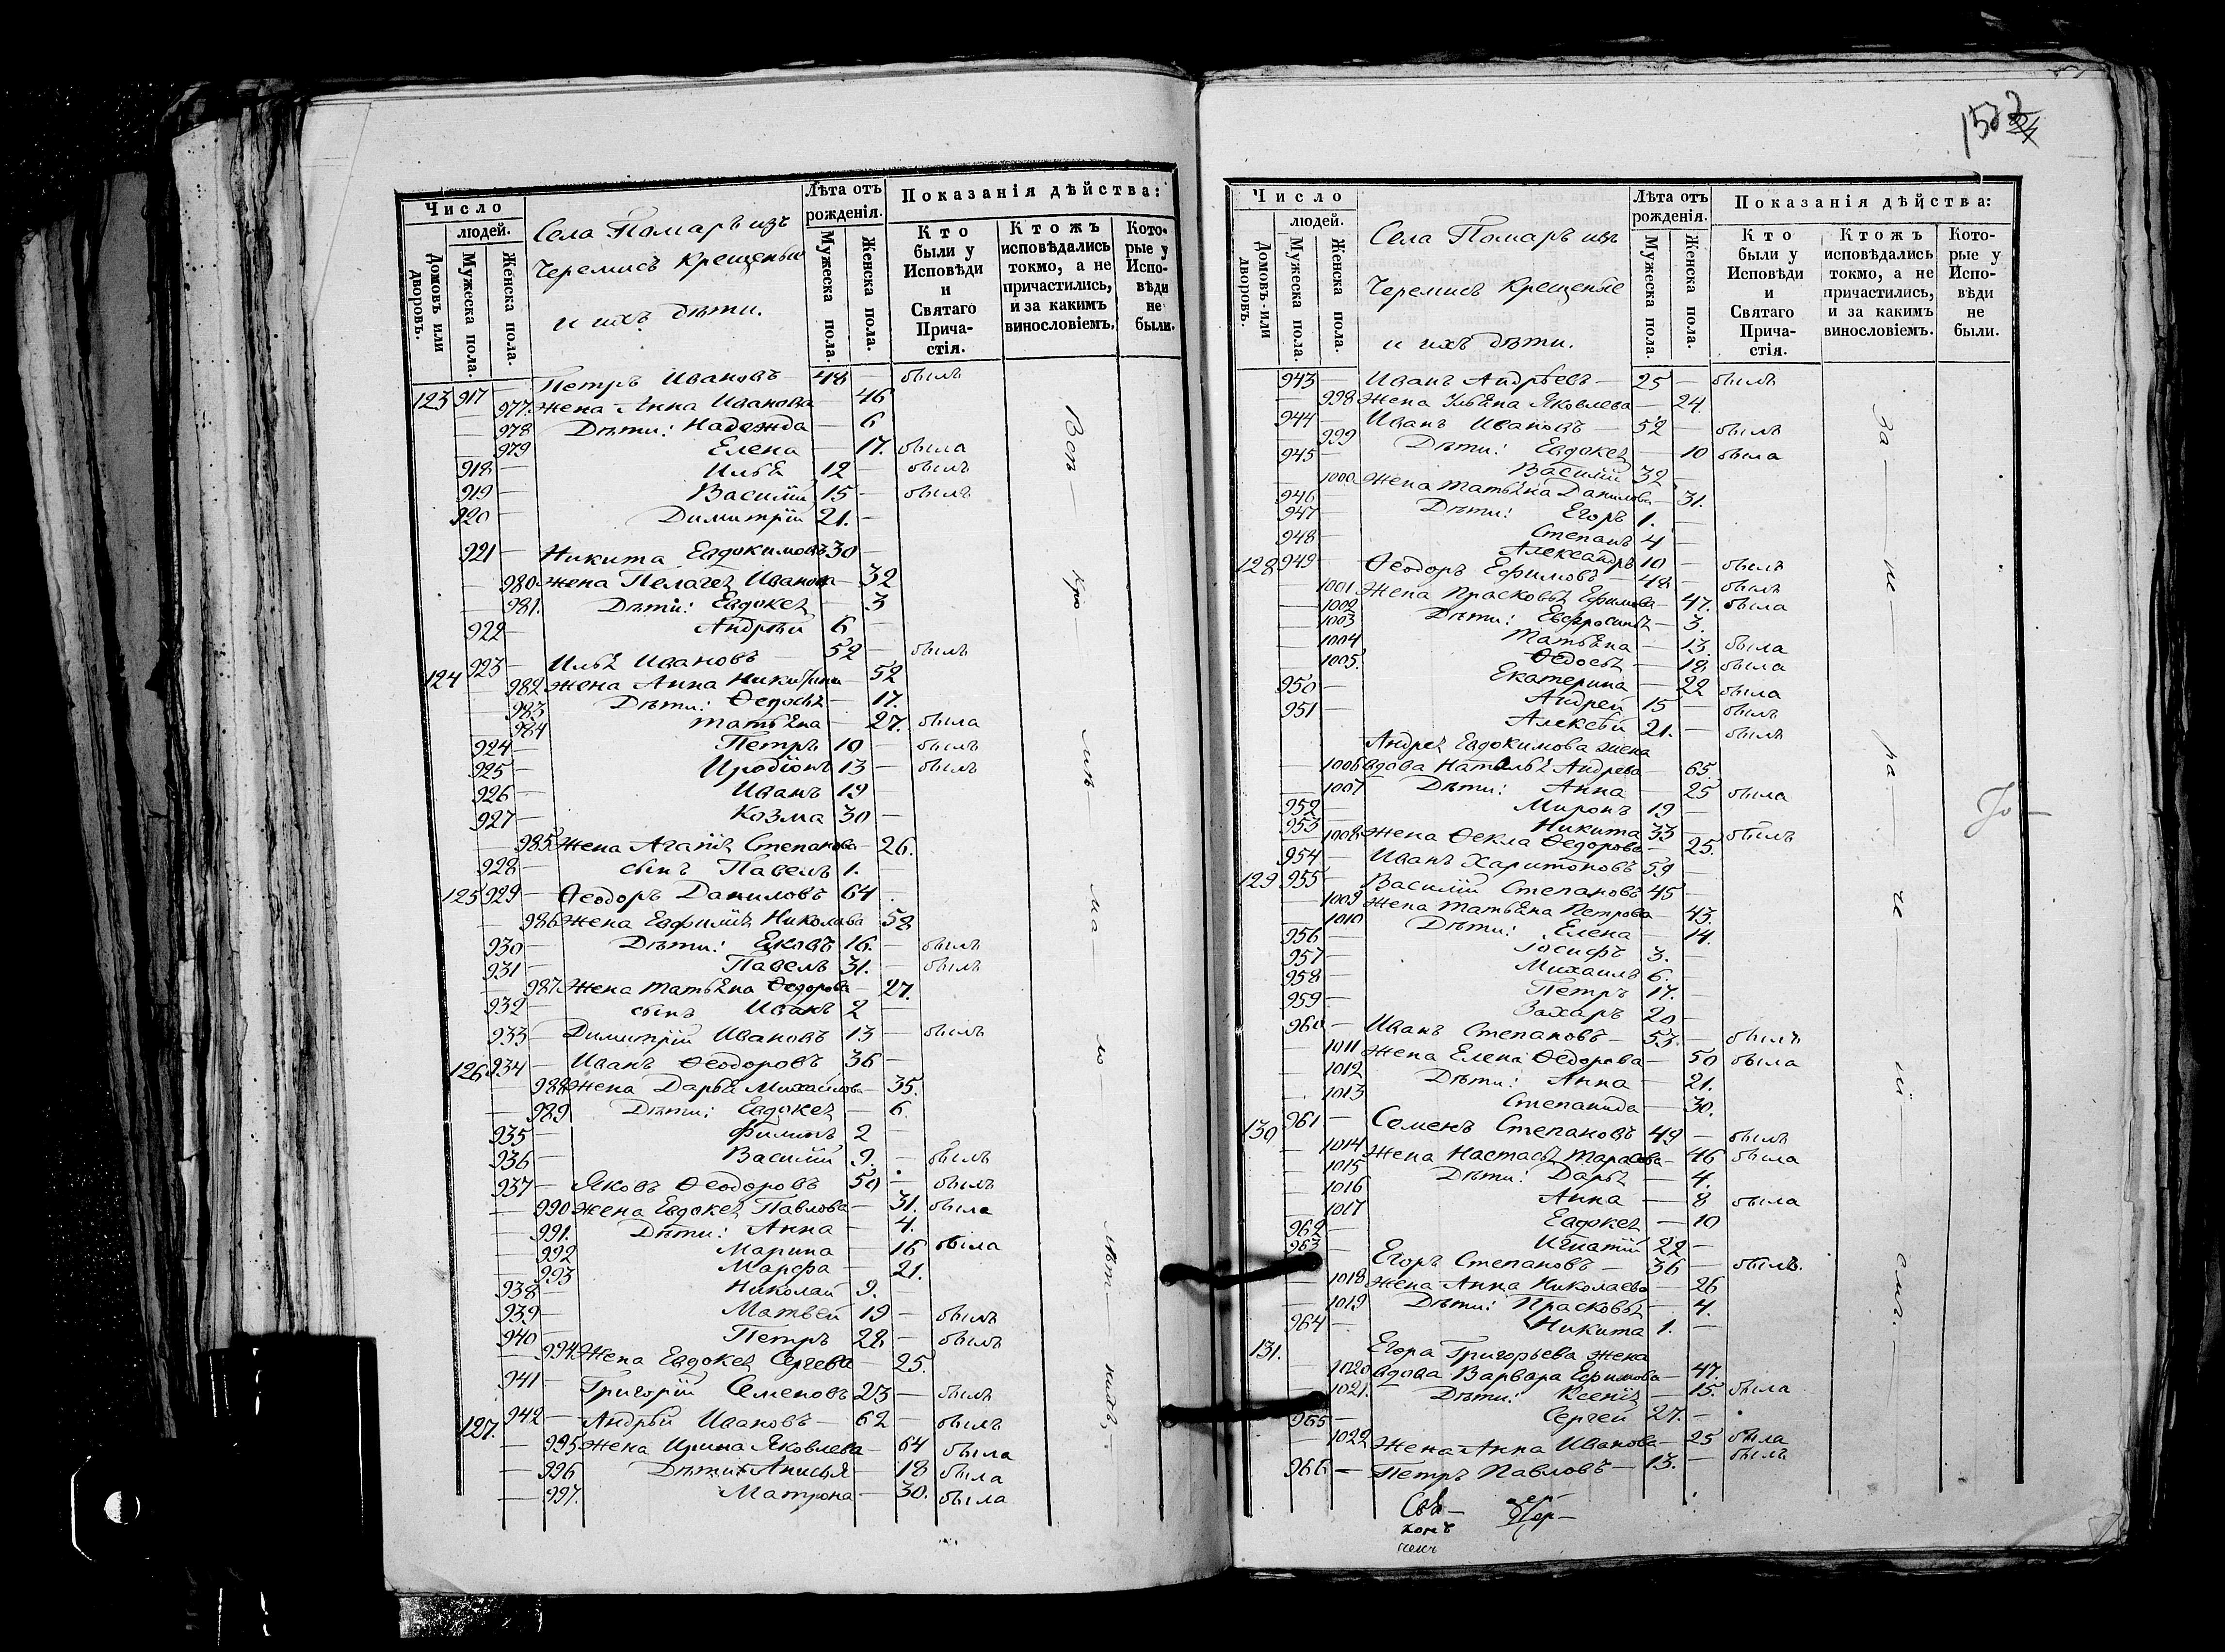 Число
людей.
Домовъ или дворовъ.
Мужеска пола.
Женска пола.
Села Помаръ изъ
Черемисъ Крещеные
и ихъ дѣти.
Лѣта отъ рожденія.
Мужеска пола.
Женска пола.
Показанія дѣйства:
Кто были у Исповѣди и Святаго Причастія.
Ктожъ исповѣдались токмо, а не причастились, и за какимъ винословіемъ.
Которые у Исповѣди не были.
123 917 — Петръ Ивановъ 48 — былъ
— 977. Жена Анна Иванова — 46
— 978 Дѣти: Надежда — 6
— 979 Елена — 17. была
918 — Илья 12 — былъ
919 — Василій 15 — былъ
920 — Димитрій 21. —
921 — Никита Евдокимовъ 30 —
— 980 Жена Пелагея Иванова — 32
— 981. Дѣти: Евдокея — 3
922 — Андрѣй 6 —
124 923 — Илья Ивановъ — 52 — былъ
— 982 Жена Анна Никитина — 52
— 983 Дѣти: Ѳедосья — 17.
— 984 Татьяна — 27. была
924 — Петръ 10 — былъ
925 — Иродіонъ 13 — былъ
926 — Иванъ 19
927 — Козма 30 —
— 985 Жена Агапія Степанова — 26.
928 — сынъ Павелъ 1. —
125 929 — Ѳеодоръ Даниловъ 64 .
— 986 Жена Евфимія Николаева 58
930 — Дѣти: Яковъ 16. — былъ
931 — Павелъ 31. — былъ
— 987. Жена Татьяна Ѳедорова — 27.
932 — сынъ Иванъ 2 —
933 — Димитрій Ивановъ 13 — былъ
126 934 — Иванъ Ѳеодоровъ 36 —
— 988 Жена Дарья Михайлова — 35.
— 989 Дѣти: Евдокея — 6.
935 — Филипъ 2 —
936 — Василій 9. — былъ
937 — Яковъ Ѳеодоровъ 50 — былъ
— 990 Жена Евдокея Павлова — 31. была
— 991. Дѣти: Анна — 4.
— 992 Марина — 16 была
— 993 Марфа — 21.
938 — Николай 9.
939 — Матвей 19 — былъ
940 — Петръ 28 — былъ
— 994 Жена Евдокея Сергева — 25.
941 — Григорій Семеновъ 23 — былъ
127. 942 — Андрѣй Ивановъ — 62 — былъ
— 995 Жена Ирина Яковлева — 64 была
— 996 Дѣти: Анисья — 18 была
— 997. Матрона — 30. была
152
24
Число
людей.
Домовъ или дворовъ.
Мужеска пола.
Женска пола.
Села Помаръ изъ
Черемисъ Крещеные
и ихъ дѣти.
Лѣта отъ рожденія.
Мужеска пола.
Женска пола.
Показанія дѣйства:
Кто были у Исповѣди и Святаго Причастія.
Ктожъ исповѣдались токмо, а не причастились, и за какимъ винословіемъ.
Которые у Исповѣди не были.
943 — Иванъ Андрѣевъ — 25 — былъ
— 998 Жена Ульяна Яковлева — 24.
944 Иванъ Ивановъ — 52 — былъ
— 999 Дѣти: Евдокея — 10 была
945 — Василій 32 —
— 1000 Жена Татьяна Данилова — 31.
946 — Дѣти: Егоръ 1. —
947 — Степанъ 4 —
948 — Александръ 10 — былъ
128 949 — Ѳеодоръ Ефимовъ — 48 — былъ
— 1001 Жена Прасковья Ефимова — 47. была
— 1002 Дѣти: Евфросинья — 3.
— 1003 Татьяна — 13. была
— 1004 Ѳедосья — 18 была
— 1005. Екатерина — 22 была
950 — Андрей 15 — былъ
951 — Алексѣй 21. — былъ
Андрея Евдокимова жена
— 1006 вдова Наталья Андрева — 65.
— 1007 Дѣти: Анна — 25 была
952 — Миронъ 19 —
953 — Никита 33 — былъ
— 1008 Жена Ѳекла Ѳедорова — 25.
954 — Иванъ Харитоновъ 59 —
129 955 — Василій Степановъ 45 —
— 1009 Жена Татьяна Петрова — 43.
— 1010 Дѣти: Елена — 14.
956 — Іосифъ 3. —
957 — Михаилъ 6. —
958 — Петръ 17. —
959 — Захаръ 20 —
960 — Иванъ Степановъ — 53. — былъ
— 1011 Жена Елена Ѳедорова — 50 была
— 1012 Дѣти: Анна — 21.
— 1013 Степанида — 30.
130 961 — Семенъ Степановъ 49 — былъ
— 1014 Жена Настасья Тарасова — 46 была
— 1015 Дѣти: Дарья — 4.
— 1016 Анна — 8 была
— 1017 Евдокея — 10
962 — Игнатій 22 —
963 — Егоръ Степановъ — 36 — былъ.
— 1018 Жена Анна Николаева — 26
— 1019 Дѣти: Прасковья — 4.
964 — Никита 1. —
131. Егора Григорьева жена
— 1020 вдова Варвара Ефимова — 47.
— 1021. Дѣти: Ксенія — 15. была
965 — Сергей 27. —
— 1022 Жена Анна Иванова — 25 была
966 — Петръ Павловъ — 13. — былъ
За — не — ра — че — ні — емъ. —